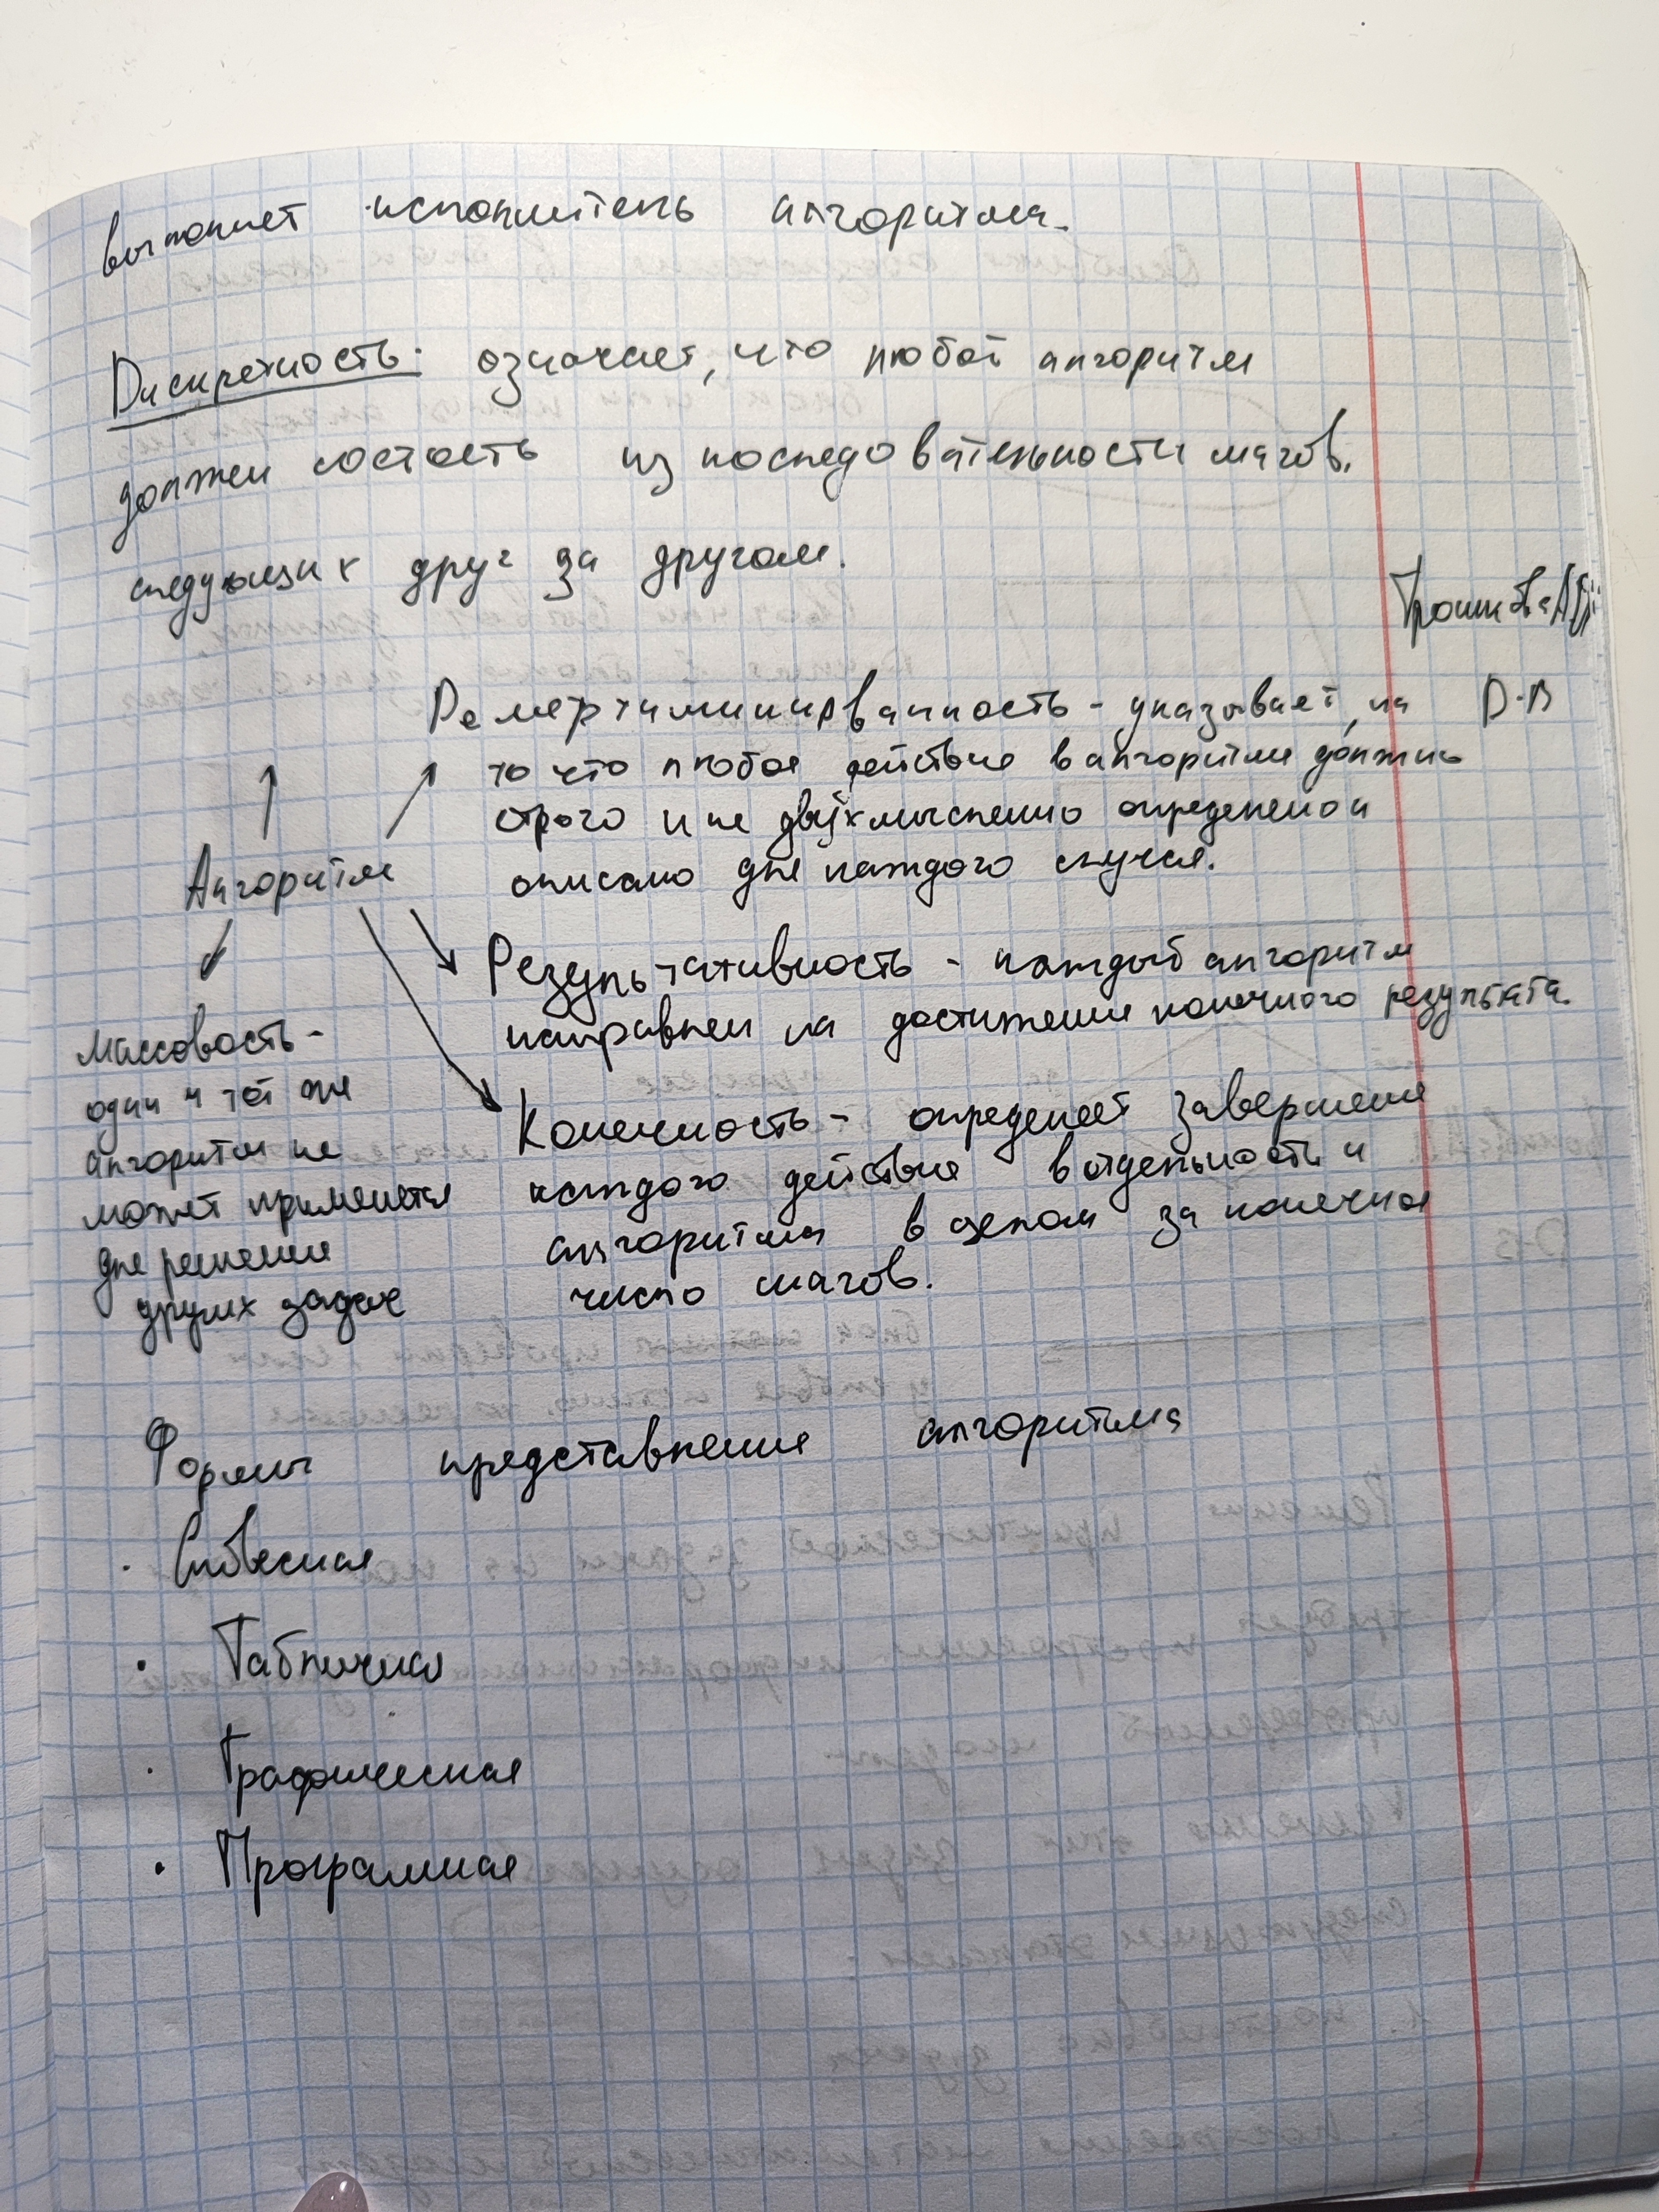 выполняет исполнитель алгоритма.
Дискретность: означает, что любой алгоритм
должен состоять из последовательности шагов,
следующих друг за другом.
Демертиминированность - указывает, на
то что любое действие в алгоритме должно
строго и не двухмысленно определено и
описано для каждого случая.
Д-В
Алгоритм
Результативность - каждый алгоритм
направлен на достижение конечного результата.
Массовость -
один и тот же
алгоритм не
может применется
для решения
других задач
Конечность - определяет завершение
каждого действия в отдельности и
алгоритма в целом за конечное
число шагов.
Формы представления алгоритма
· Словесная
· Табличная
· Графическая
· Программная